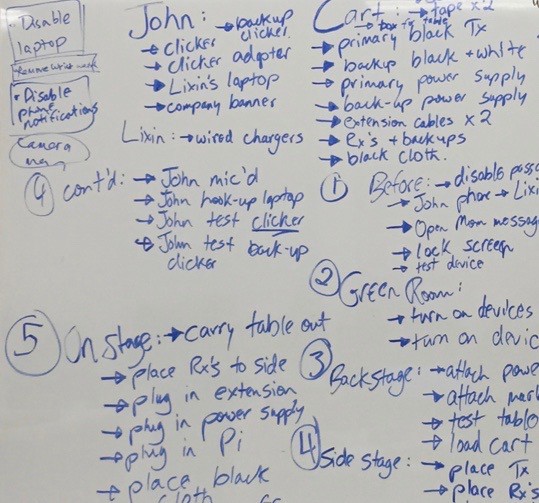 • Disable
laptop
• Disable
phone
notifications
Camera
man
John: → backup
clicker
→ clicker
→ clicker adapter
→ Lixin's laptop
→ company banner
Lixin: → wired chargers
Cart: → tape x2
→ box for table
→ primary black Tx
→ backup black + white
→ primary power supply
→ back-up power supply
→ extension cables x2
→ Rx's + backups
→ black cloth.
④ cont'd: → John mic'd
→ John hook-up laptop
→ John test clicker
→ John test back-up
clicker
① Before: → disable
→ John phone → Lixi
→ Open Mom message
→ lock screen
→ test device
② Green Room:
→ turn on devices
→ turn on devic
③ Backstage: → attach powe
→ attach
→ test table
→ load cart
④ Side stage: → place Tx
→ place Rx's
⑤ On stage: → carry table out
→ place Rx's to side
→ plug in extension
→ plug in power supply
→ plug in Pi
→ place black
cloth